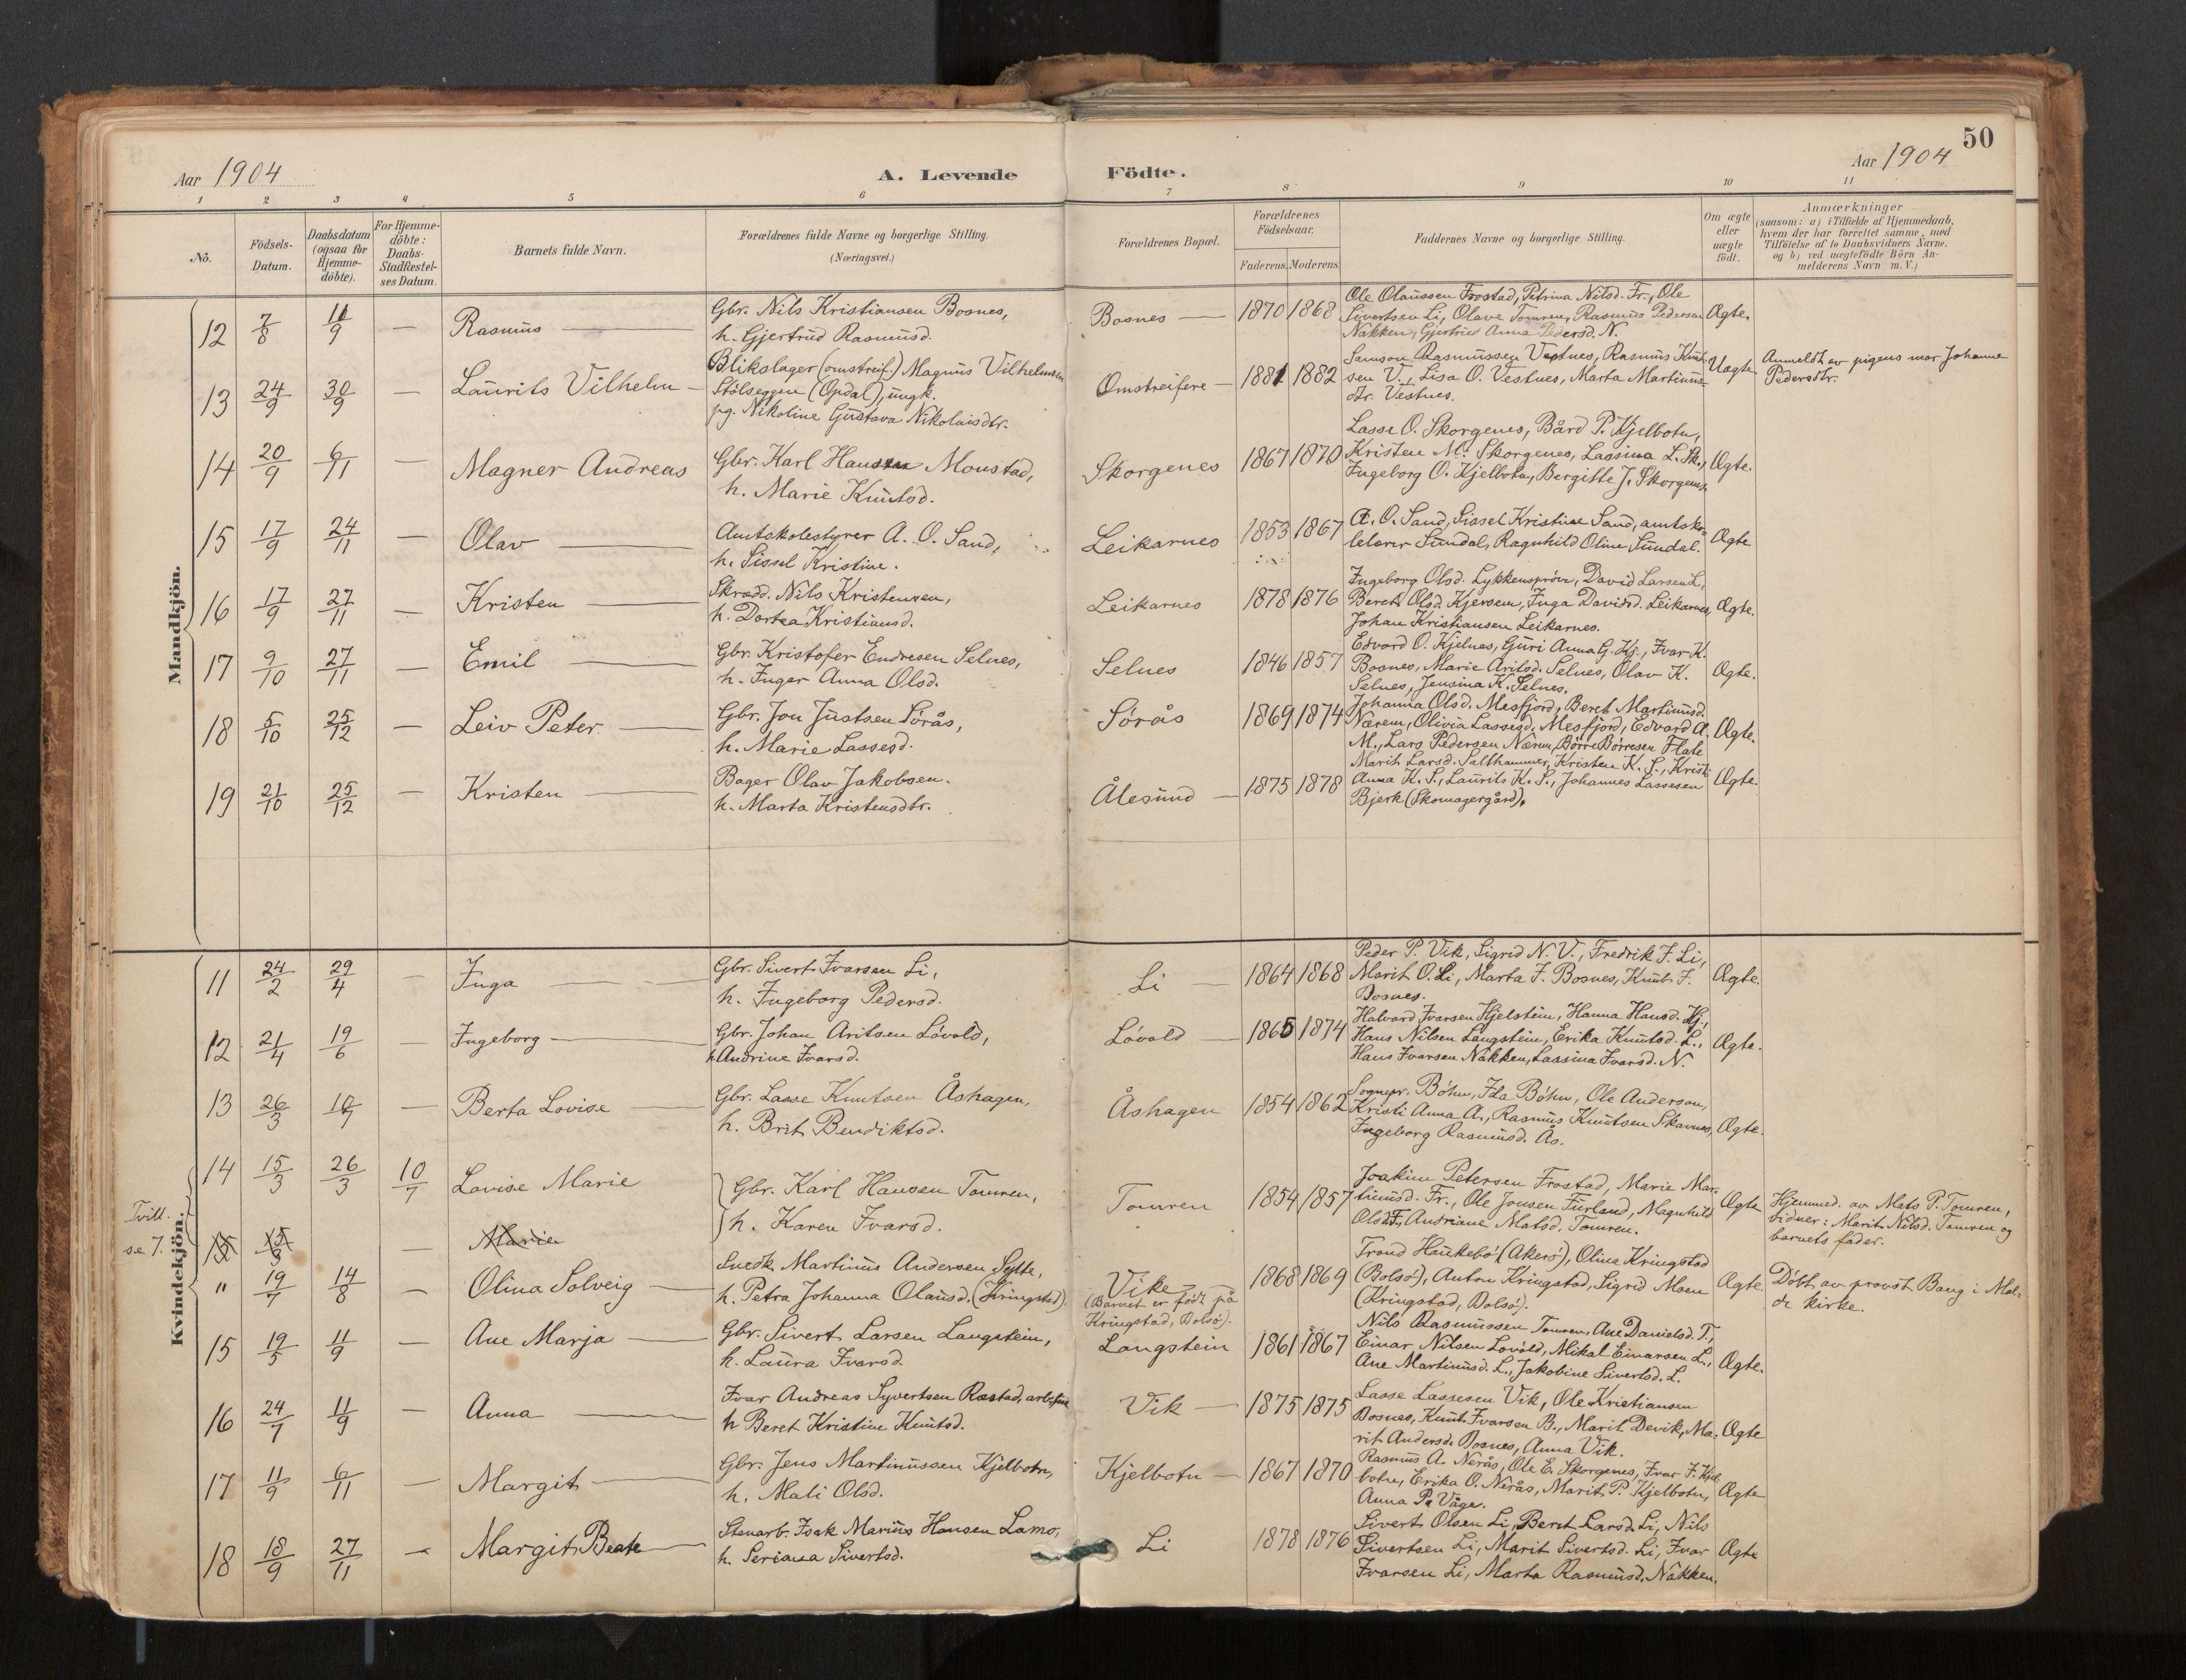 50
Aar 1904
A. Levende
Födte.
Aar 1904
1 2 3 4 5 6 7 8 9 10 11
No.
Födsels-
Datum.
Daabsdatum
(ogsaa for
Hjemme-
döbte).
For Hjemme-
döbte:
Daabs-
Stadfæstel-
ses Datum.
Barnets fulde Navn.
Forældrenes fulde Navne og borgerlige Stilling.
(Næringsvei.)
Forældrenes Bopæl.
Forældrenes
Födselsaar.
Faderens. Moderens.
Faddernes Navne og borgerlige Stilling.
Om ægte
eller
uægte
født.
Anmærkninger
(saasom: a) i Tilfælde af Hjemmedaab,
hvem der har forrettet samme, med
Tilföielse af to Daabsvidners Navne.
og b) ved uægtefödte Börn An-
melderens Navn m.V.)
Mandkjön.
12 7/8 11/9 — Rasmus
Gbr. Nils Kristiansen Bosnes,
h. Gjertrud Rasmusd.
Bosnes 1870 1868
Ole Olaussen Frostad, Petrina Nilsd. Fr., Ole
Sivertsen Li, Olave Tomren, Rasmus Pedersen
Nakken, Gjertrud Anna Pedersd. N.
Ægte.
13 24/9 30/9 — Laurits Vilhelm
Blikslager (omstreif.) Magnus Vilhelmsen
Stölseggen (Opdal), ungk.
pg. Nikoline Gustava Nikolaisdtr.
Omstreifere 1881 1882
Samson Rasmussen Vestnes, Rasmus Knut-
sen V., Lisa O. Vestnes, Marta Martinus-
dtr. Vestnes.
Uægte
Anmeldt av pigens mor Johanne
Pedersdtr.
14 20/9 6/11 — Magner Andreas
Gbr. Karl Hansen Monstad,
h. Marie Knutsd.
Skorgenes 1867 1870
Lasse O. Skorgenes, Bård P. Kjelbotn,
Kristen M. Skorgenes, Lassina L. Sk.,
Ingeborg O. Kjelbotn, Bergitte J. Skorgenes.
Ægte.
15 17/9 24/11 — Olav
Amtskolestyrer A. O. Sand,
h. Sissel Kristine.
Leikarnes 1853 1867
A. O. Sand, Sissel Kristine Sand, amtsko-
lelærer Sundal, Ragnhild Oline Sundal.
Ægte
16 17/9 27/11 — Kristen
Skrædd. Nils Kristensen,
h. Dortea Kristiansd.
Leikarnes 1878 1876
Ingeborg Olsd. Lykkensprøve, David Larsen L.,
Beret Olsd. Kjersem, Inga Davidsd. Leikarnes,
Johan Kristiansen Leikarnes.
Ægte.
17 9/10 27/11 — Emil
Gbr. Kristofer Endresen Selnes,
h. Inger Anna Olsd.
Selnes 1846 1857
Edvard O. Kjelnes, Guri Anna G. Kj., Ivar K.
Bosnes, Marie Arilsd. Selnes, Olav K.
Selnes, Jensina K. Selnes.
Ægte.
18 5/10 25/12 — Leiv Peter
Gbr. Jon Justsen Sörås,
h. Marie Lassesd.
Sörås 1869 1874
Johanna Olsd. Mesfjord, Beret Martinusd.
Nærem, Olivia Lassesd. Mesfjord, Edvard A.
M., Lars Pedersen Nærem, Börre Börresen Flate
Ægte.
19 21/10 25/12 — Kristen
Bager Olav Jakobsen.
h. Marta Kristensdtr.
Ålesund 1875 1878
Marit Larsd. Salthammer, Kristen K. S., Kristi
Anna K. S., Laurits K. S., Johannes Lassesen
Bjerk (Skomagergård).
Ægte.
Kvindekjön.
11 24/2 29/4 — Inga
Gbr. Sivert Ivarsen Li,
h. Ingeborg Pedersd.
Li 1864 1868
Peder P. Vik, Sigrid N. V., Fredrik I. Li,
Marit O. Li, Marta I. Bosnes, Knut I.
Bosnes.
Ægte.
12 21/4 19/6 — Ingeborg
Gbr. Johan Arilsen Lövold,
h. Andrine Ivarsd.
Lövold 1865 1874
Halvard Ivarsen Hjelstein, Hanna Hansd. Hj.,
Hans Nilsen Langstein, Erika Knutsd. L.,
Hans Ivarsen Nakken, Lassina Ivarsd. N.
Ægte.
13 26/3 10/7 — Berta Lovise
Gbr. Lasse Knutsen Åshagen,
h. Brit Bendiktsd.
Åshagen 1854 1862
Sognepr. Böhn, Ida Böhn, Ole Anderson,
Kristi Anna A., Rasmus Knutsen Skavnes,
Ingeborg Rasmusd. Ås.
Ægte.
Tvill.
se 7.
14 15/3 26/3 10/7 Lovise Marie
Gbr. Karl Hansen Tomren,
h. Karen Ivarsd.
Tomren 1854 1857
Joakim Petersen Frostad, Marie Mar-
tinusd. Fr., Ole Jonsen Furland, Magnhild
Olsd. F., Andriane Matsd. Tomren.
Ægte
Hjemmed. av Mats P. Tomren,
vidner: Marit Nilsd. Tomren og
barnets fader.
15 15/3 — Marie
" 19/7 14/8 — Olina Solveig
Snedk. Martinus Andersen Sylte,
h. Petra Johanna Olausd. (Kringstad).
Vike
(Barnet er født på
Kringstad, Bolsö).
1868 1869
Trond Haukebö (Akerö), Olina Kringstad
(Bolsö), Anton Kringstad, Sigrid Moen
(Kringstad, Bolsö).
Ægte
Döbt av provst Bang i Mol-
de kirke.
15 19/5 11/9 — Ane Marja
Gbr. Sivert Larsen Langstein,
h. Laura Ivarsd.
Langstein 1861 1867
Nils Rasmussen Tomren, Ane Danielsd. T.,
Einar Nilsen Lovold, Mikal Einarsen L.,
Ane Martinusd. L., Jakobine Sivertsd. L.
Ægte.
16 24/7 11/9 — Anna
Ivar Andreas Syvertsen Rastad,
h Beret Kristine Knutsd.
Vik 1875 1875
Lasse Lassesen Vik, Ole Kristiansen
Bosnes, Knut Ivarsen B., Marit Devik, Ma-
rit Andersd. Bosnes, Anna Vik.
Ægte
17 11/9 6/11 — Margit
Gbr. Jens Martinussen Kjelbotn,
h. Mali Olsd.
Kjelbotn 1867 1870
Rasmus A. Nerås, Ole E. Skorgenes, Ivar I. Kjel-
botn, Erika O. Nerås, Marit P. Kjelbotn,
Anna P. Våge.
Ægte
18 18/9 27/11 — Margit Beate
Stenarb. Isak Marius Hansen Lamo,
h. Seriana Sivertsd.
Li 1878 1876
Sivert Olsen Li, Beret Larsd. Li, Nils
Sivertsen Li, Marit Sivertsd. Li, Ivar
Ivarsen Li, Marta Rasmusd. Nakken.
Ægte